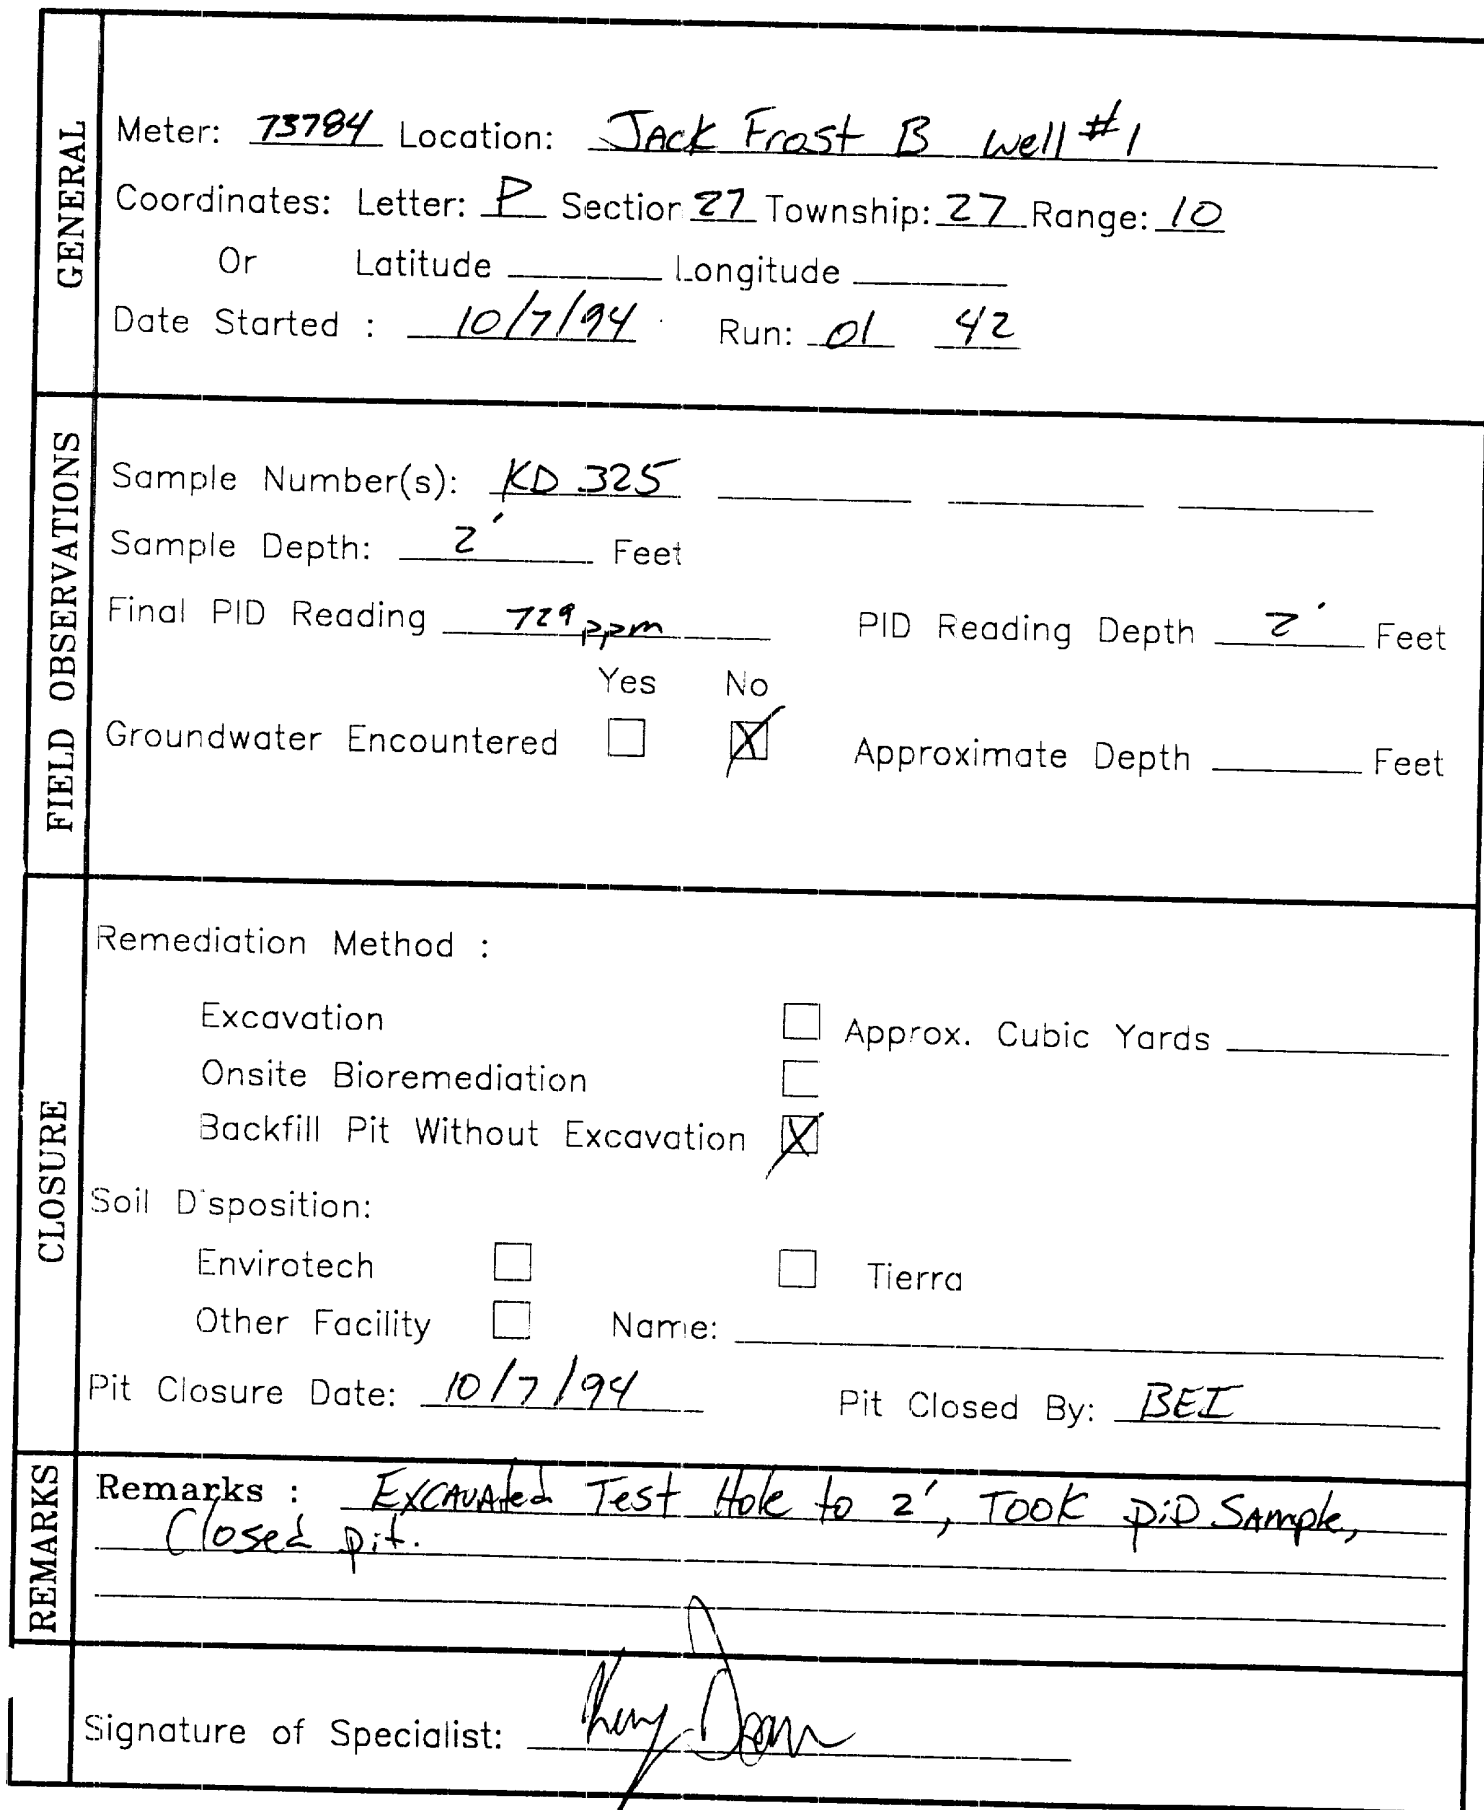 GENERAL
Meter: 73784 Location: Jack Frost B well #1
Coordinates: Letter: P Section 27 Township: 27 Range: 10
Or Latitude Longitude
Date Started : 10/7/94 Run: 01 42
FIELD OBSERVATIONS
Sample Number(s): KD 325
Sample Depth: 2' Feet
Final PID Reading 729 ppm PID Reading Depth 2' Feet
Yes No
Groundwater Encountered Approximate Depth Feet
CLOSURE
Remediation Method :
Excavation Approx. Cubic Yards
Onsite Bioremediation
Backfill Pit Without Excavation X
Soil Disposition:
Envirotech Tierra
Other Facility Name:
Pit Closure Date: 10/7/94 Pit Closed By: BEI
REMARKS
Remarks : Excavated Test Hole to 2', Took PiD Sample,
Closed pit.
Signature of Specialist: